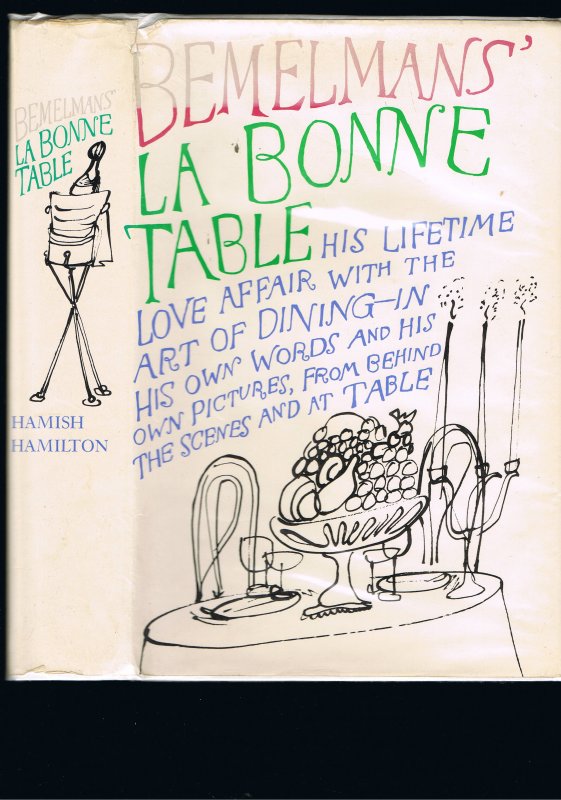 BEMELMANS'
LA BONNE
TABLE
HAMISH
HAMILTON
BEMELMANS'
LA BONNE
TABLE HIS LIFETIME
LOVE AFFAIR WITH THE
ART OF DINING—IN
HIS OWN WORDS AND HIS
OWN PICTURES, FROM BEHIND
THE SCENES AND AT TABLE